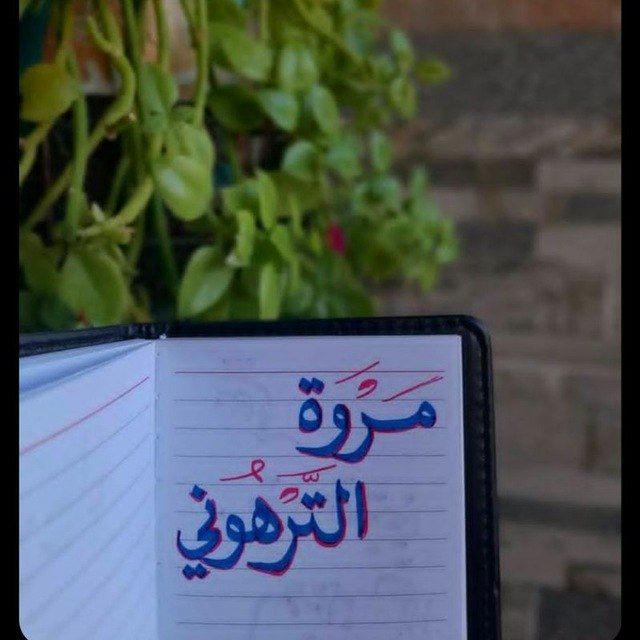 مَرْوَة
التَّرْهُوني